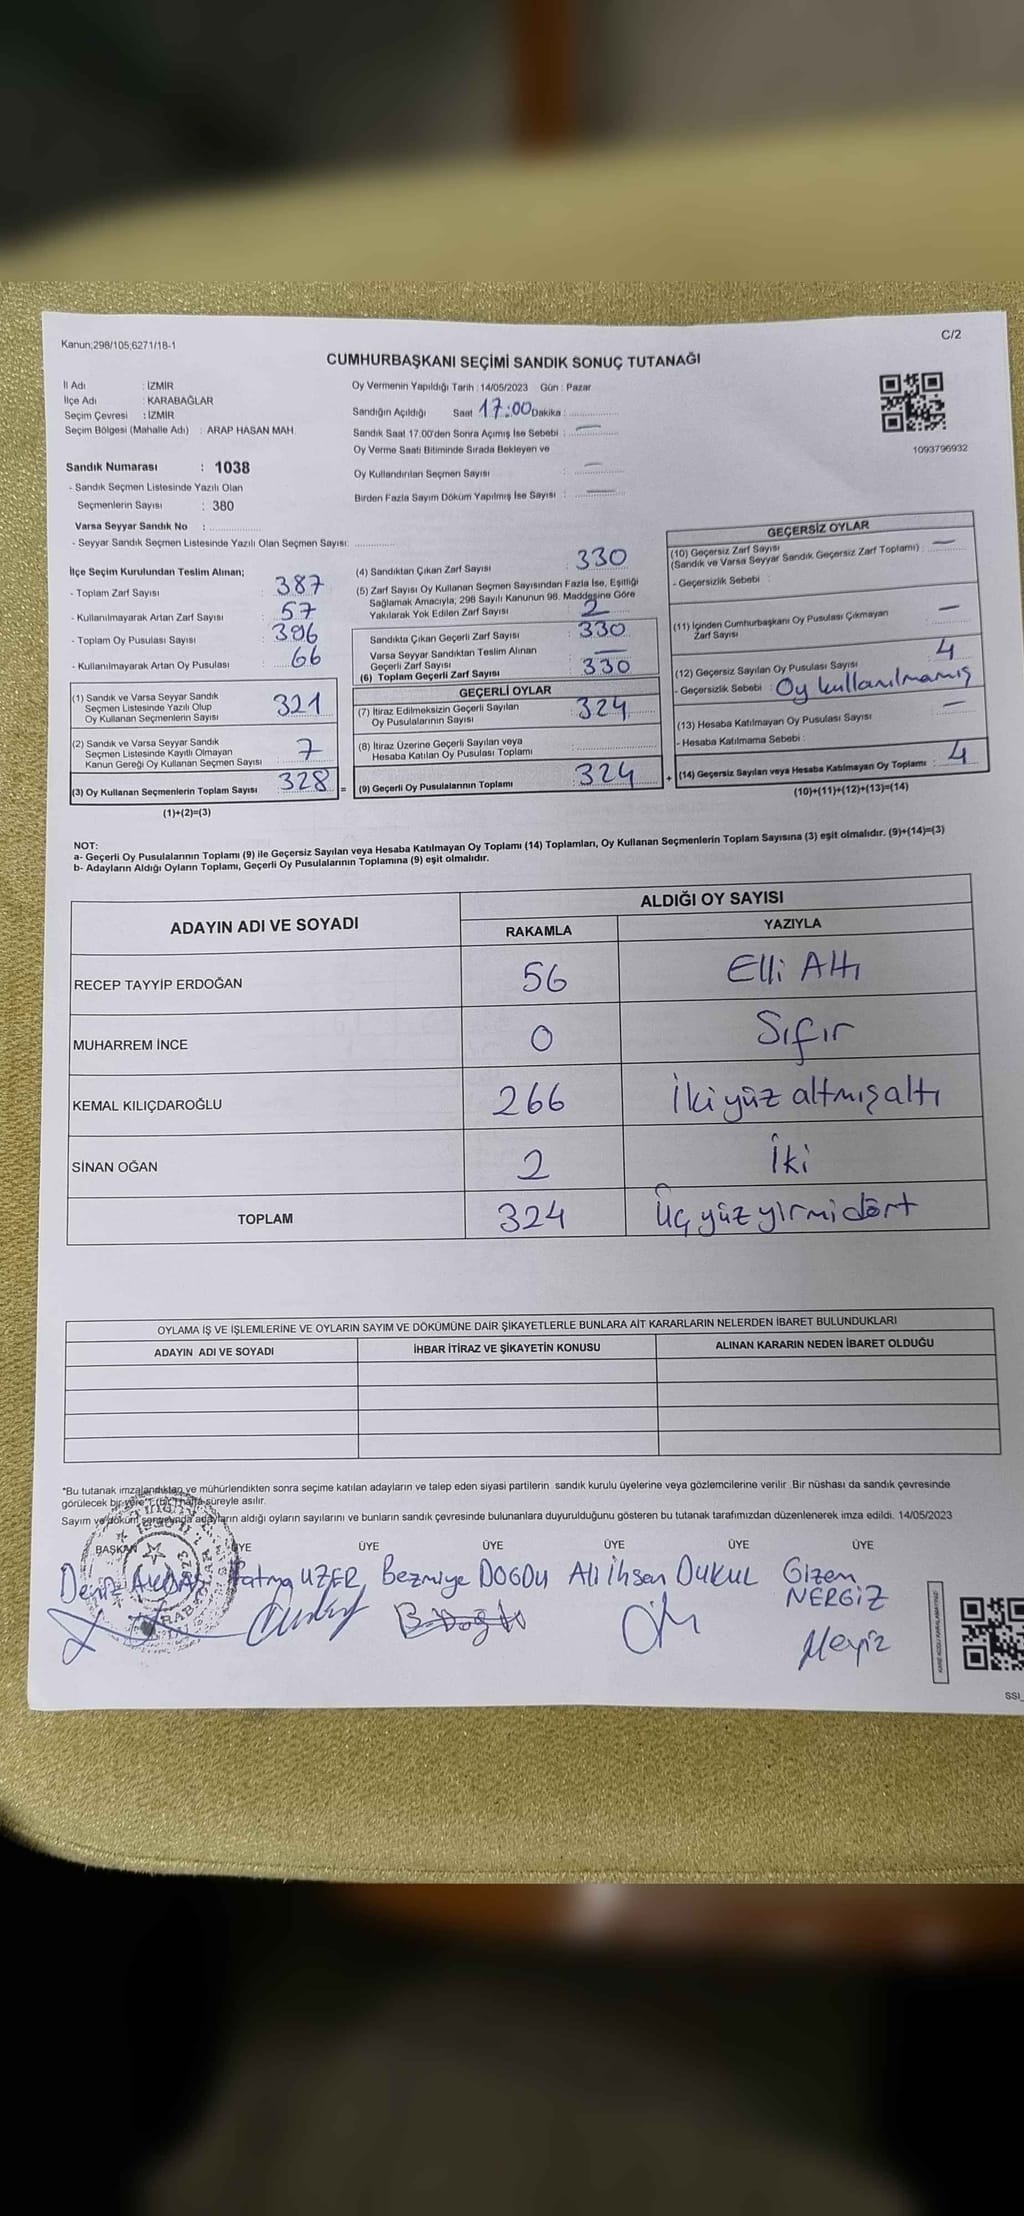 Kanun;298/105;6271/18-1
C/2
CUMHURBAŞKANI SEÇİMİ SANDIK SONUÇ TUTANAĞI
İl Adı : İZMİR
İlçe Adı : KARABAĞLAR
Seçim Çevresi : İZMİR
Seçim Bölgesi (Mahalle Adı) : ARAP HASAN MAH.
Sandık Numarası : 1038
- Sandık Seçmen Listesinde Yazılı Olan
Seçmenlerin Sayısı : 380
Varsa Seyyar Sandık No :
- Seyyar Sandık Seçmen Listesinde Yazılı Olan Seçmen Sayısı:
Oy Vermenin Yapıldığı Tarih : 14/05/2023 Gün : Pazar
Sandığın Açıldığı Saat 17:00 Dakika :
Sandık Saat 17.00'den Sonra Açımış İse Sebebi : —
Oy Verme Saati Bitiminde Sırada Bekleyen ve
Oy Kullandırılan Seçmen Sayısı : —
Birden Fazla Sayım Döküm Yapılmış İse Sayısı : —
1093796932
İlçe Seçim Kurulundan Teslim Alınan;
- Toplam Zarf Sayısı : 387
- Kullanılmayarak Artan Zarf Sayısı : 57
- Toplam Oy Pusulası Sayısı : 396
- Kullanılmayarak Artan Oy Pusulası : 66
(1) Sandık ve Varsa Seyyar Sandık
Seçmen Listesinde Yazılı Olup
Oy Kullanan Seçmenlerin Sayısı 321
(2) Sandık ve Varsa Seyyar Sandık
Seçmen Listesinde Kayıtlı Olmayan
Kanun Gereği Oy Kullanan Seçmen Sayısı 7
(3) Oy Kullanan Seçmenlerin Toplam Sayısı 328
(1)+(2)=(3)
(4) Sandıktan Çıkan Zarf Sayısı : 330
(5) Zarf Sayısı Oy Kullanan Seçmen Sayısından Fazla İse, Eşitliği
Sağlamak Amacıyla, 298 Sayılı Kanunun 98. Maddesine Göre
Yakılarak Yok Edilen Zarf Sayısı : 2
Sandıkta Çıkan Geçerli Zarf Sayısı : 330
Varsa Seyyar Sandıktan Teslim Alınan
Geçerli Zarf Sayısı : —
(6) Toplam Geçerli Zarf Sayısı : 330
GEÇERLİ OYLAR
(7) İtiraz Edilmeksizin Geçerli Sayılan
Oy Pusulalarının Sayısı : 324
(8) İtiraz Üzerine Geçerli Sayılan veya
Hesaba Katılan Oy Pusulası Toplamı :
= (9) Geçerli Oy Pusulalarının Toplamı : 324
GEÇERSİZ OYLAR
(10) Geçersiz Zarf Sayısı
(Sandık ve Varsa Seyyar Sandık Geçersiz Zarf Toplamı) : —
- Geçersizlik Sebebi :
(11) İçinden Cumhurbaşkanı Oy Pusulası Çıkmayan
Zarf Sayısı : —
(12) Geçersiz Sayılan Oy Pusulası Sayısı : 4
- Geçersizlik Sebebi : Oy kullanılmamış
(13) Hesaba Katılmayan Oy Pusulası Sayısı : —
- Hesaba Katılmama Sebebi :
+ (14) Geçersiz Sayılan veya Hesaba Katılmayan Oy Toplamı : 4
(10)+(11)+(12)+(13)=(14)
NOT:
a- Geçerli Oy Pusulalarının Toplamı (9) ile Geçersiz Sayılan veya Hesaba Katılmayan Oy Toplamı (14) Toplamları, Oy Kullanan Seçmenlerin Toplam Sayısına (3) eşit olmalıdır. (9)+(14)=(3)
b- Adayların Aldığı Oyların Toplamı, Geçerli Oy Pusulalarının Toplamına (9) eşit olmalıdır.
ADAYIN ADI VE SOYADI ALDIĞI OY SAYISI
RAKAMLA YAZIYLA
RECEP TAYYİP ERDOĞAN 56 Elli Altı
MUHARREM İNCE 0 Sıfır
KEMAL KILIÇDAROĞLU 266 İki yüz altmışaltı
SİNAN OĞAN 2 İki
TOPLAM 324 Üç yüz yirmi dört
OYLAMA İŞ VE İŞLEMLERİNE VE OYLARIN SAYIM VE DÖKÜMÜNE DAİR ŞİKAYETLERLE BUNLARA AİT KARARLARIN NELERDEN İBARET BULUNDUKLARI
ADAYIN ADI VE SOYADI İHBAR İTİRAZ VE ŞİKAYETİN KONUSU ALINAN KARARIN NEDEN İBARET OLDUĞU
"Bu tutanak imzalandıktan ve mühürlendikten sonra seçime katılan adayların ve talep eden siyasi partilerin sandık kurulu üyelerine veya gözlemcilerine verilir. Bir nüshası da sandık çevresinde
görülecek bir yere 1 (bir) hafta süreyle asılır.
Sayım ve döküm sonucunda adayların aldığı oyların sayılarını ve bunların sandık çevresinde bulunanlara duyurulduğunu gösteren bu tutanak tarafımızdan düzenlenerek imza edildi. 14/05/2023
BAŞKAN ÜYE ÜYE ÜYE ÜYE ÜYE ÜYE
Deniz Fatma UZER Bezmiye DOĞDU Ali İhsan DUKUL Gizem
NERGİZ
SSI_